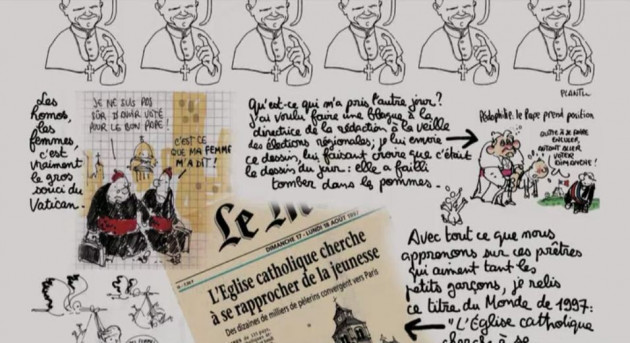 PLANTU
Les
homos,
les
femmes,
c'est
vraiment
le gros
souci du
Vatican.
JE NE SUIS PAS
SÛR D'AVOIR VOTÉ
POUR LE BON PAPE!
C'EST CE
QUE MA FEMME
M'A DIT!
Qu'est-ce qui m'a pris l'autre jour?
J'ai voulu faire une blague à la
directrice de la rédaction à la veille
des élections régionales; je lui envoie
ce dessin lui faisant croire que c'était
le dessin du jour: elle a failli
tomber dans les pommes.
Pédophilie: le Pape prend position
QUITTE À SE FAIRE
ENCULER,
AUTANT ALLER
VOTER
DIMANCHE!
Le M
DIMANCHE 17 - LUNDI 18 AOÛT 1997
L'Eglise catholique cherche
à se rapprocher de la jeunesse
Des dizaines de milliers de pèlerins convergent vers Paris
Avec tout ce que nous
apprenons sur ces prêtres
qui aiment tant les
petits garçons, je relis
ce titre du Monde de 1997:
"L'Église catholique
cherche à se